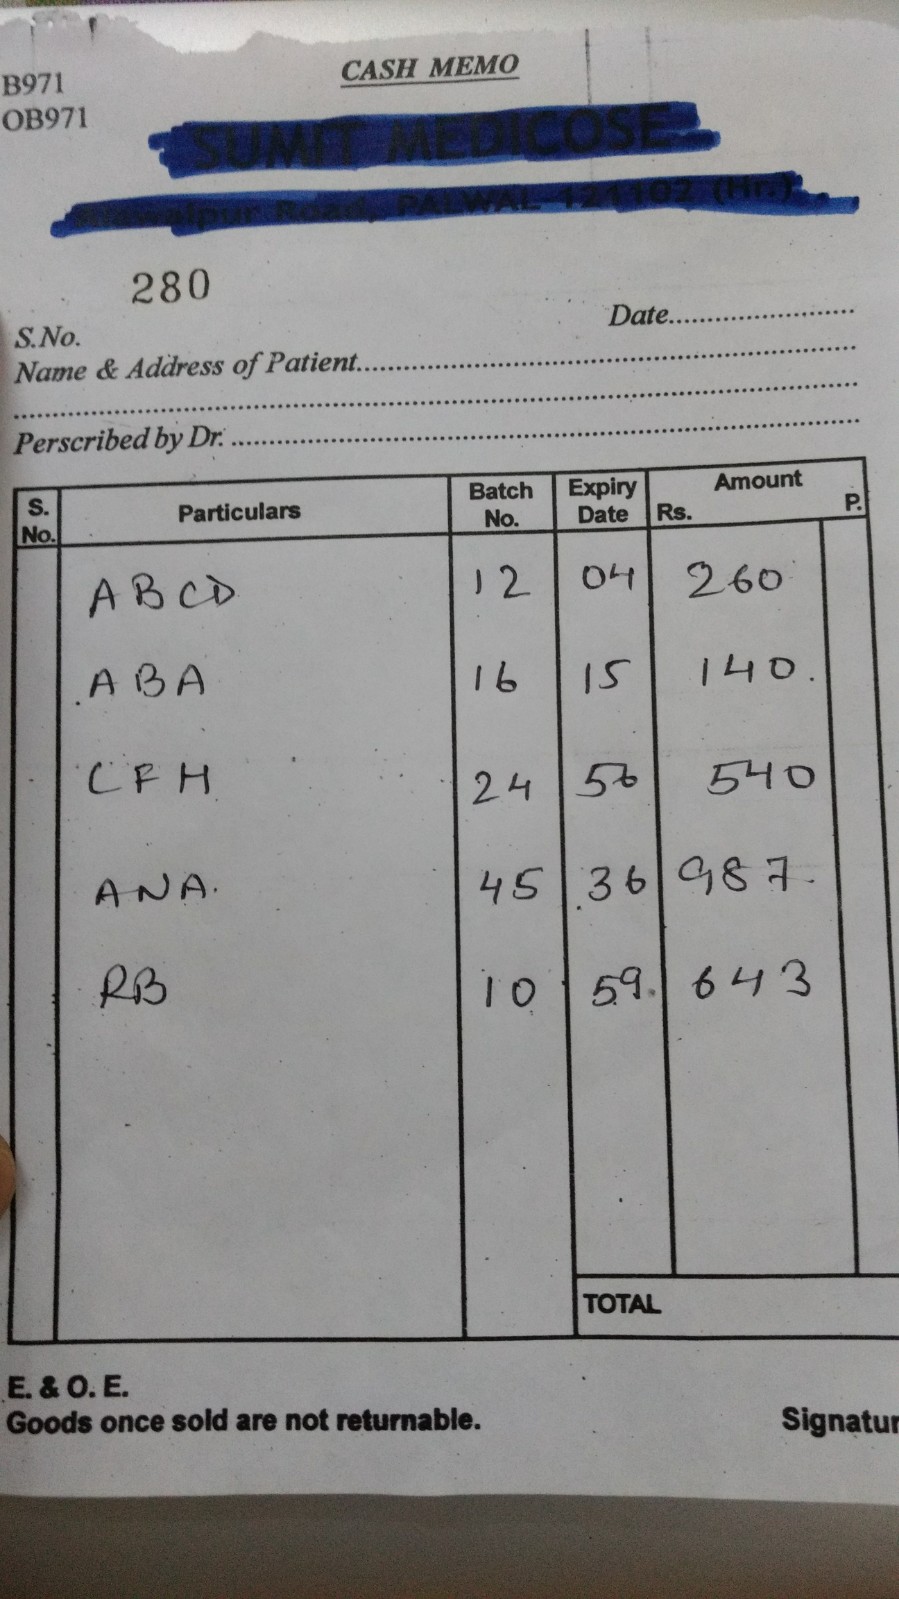 B971
OB971
CASH MEMO
SUMIT MEDICOSE
Road, PALWAL-121102 (Hr.)
280
S.No.
Date
Name & Address of Patient
Perscribed by Dr.
S. No. Particulars Batch No. Expiry Date Amount Rs. P.
ABCD 12 04 260
ABA 16 15 140.
CFH 24 56 540
ANA. 45 36 987
RB 10 59 643
TOTAL
E. & O. E.
Goods once sold are not returnable.
Signatur